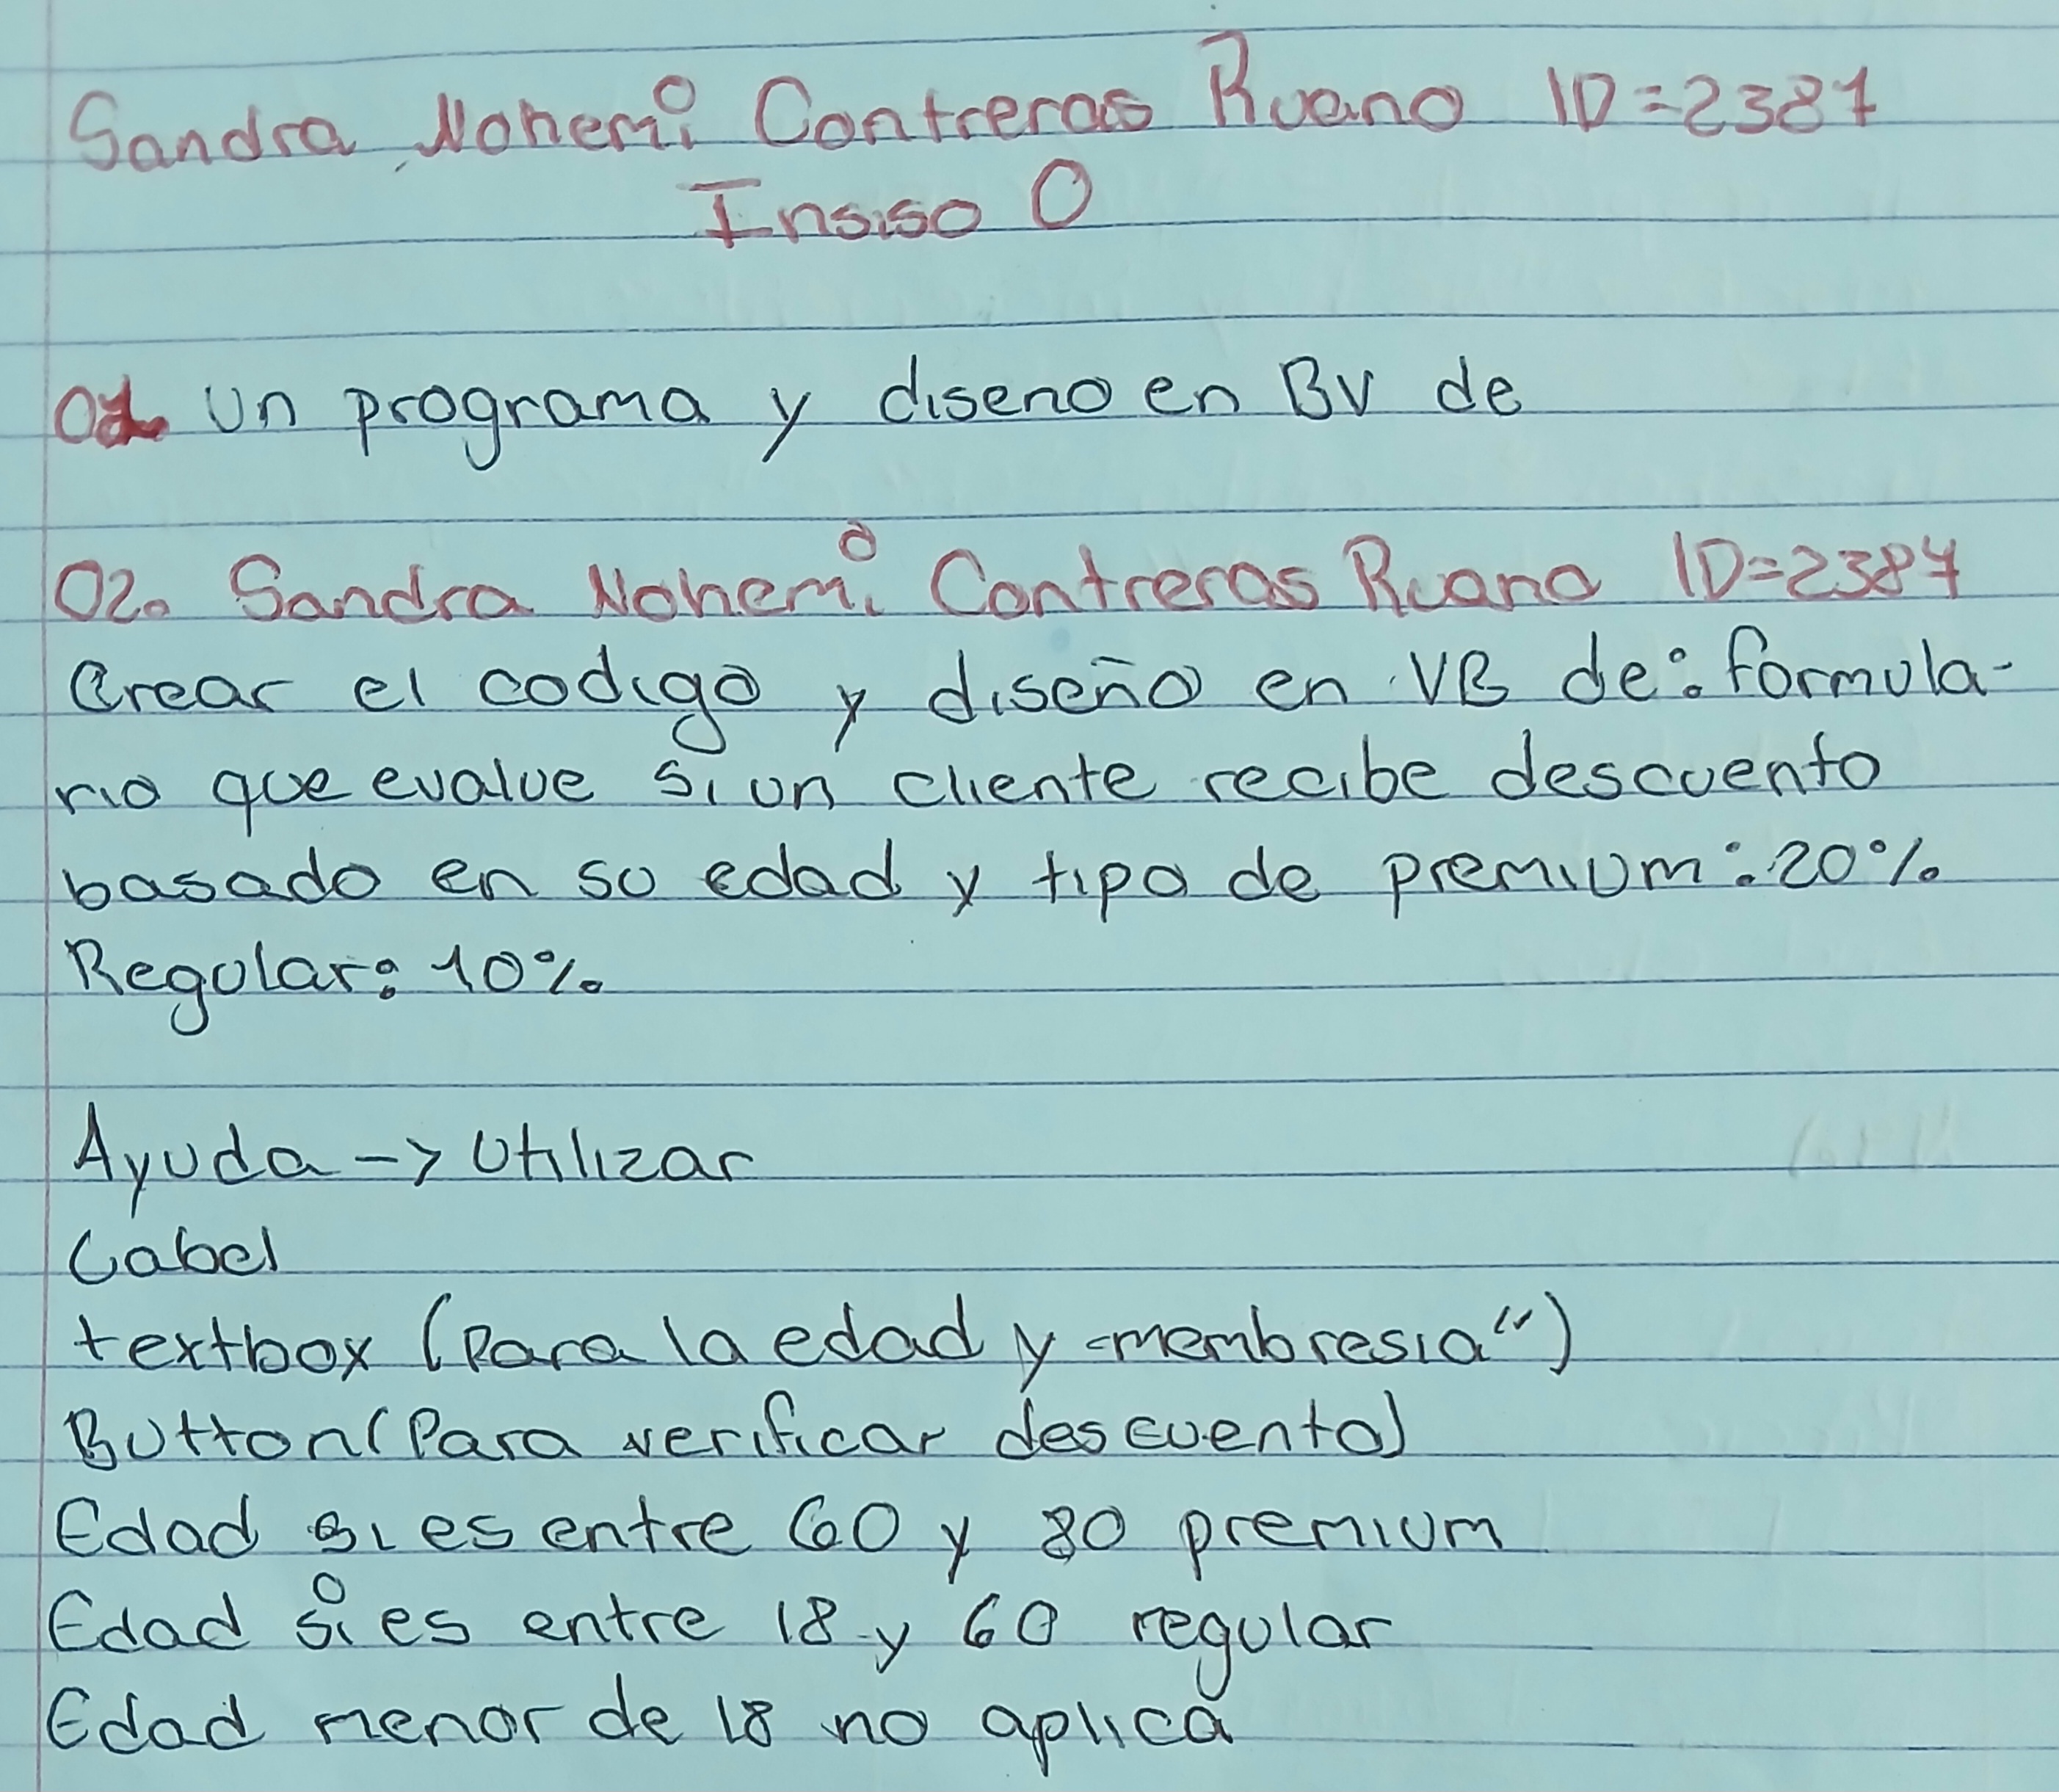 Sandra Nohemi Contreras Ruano ID=2387
Insiso O
01. Un programa y diseno en BV de
02. Sandra Nohemi Contreras Ruano ID=2387
Crear el codigo y diseño en VB de: formula-
rio que evalue si un cliente recibe descuento
basado en su edad y tipo de premium: 20%
Regular: 10%
Ayuda -> Utilizar
Label
textbox (Para la edad y membresia")
Button (Para verificar descuento)
Edad si es entre 60 y 80 premium
Edad si es entre 18 y 60 regular
Edad menor de 18 no aplica